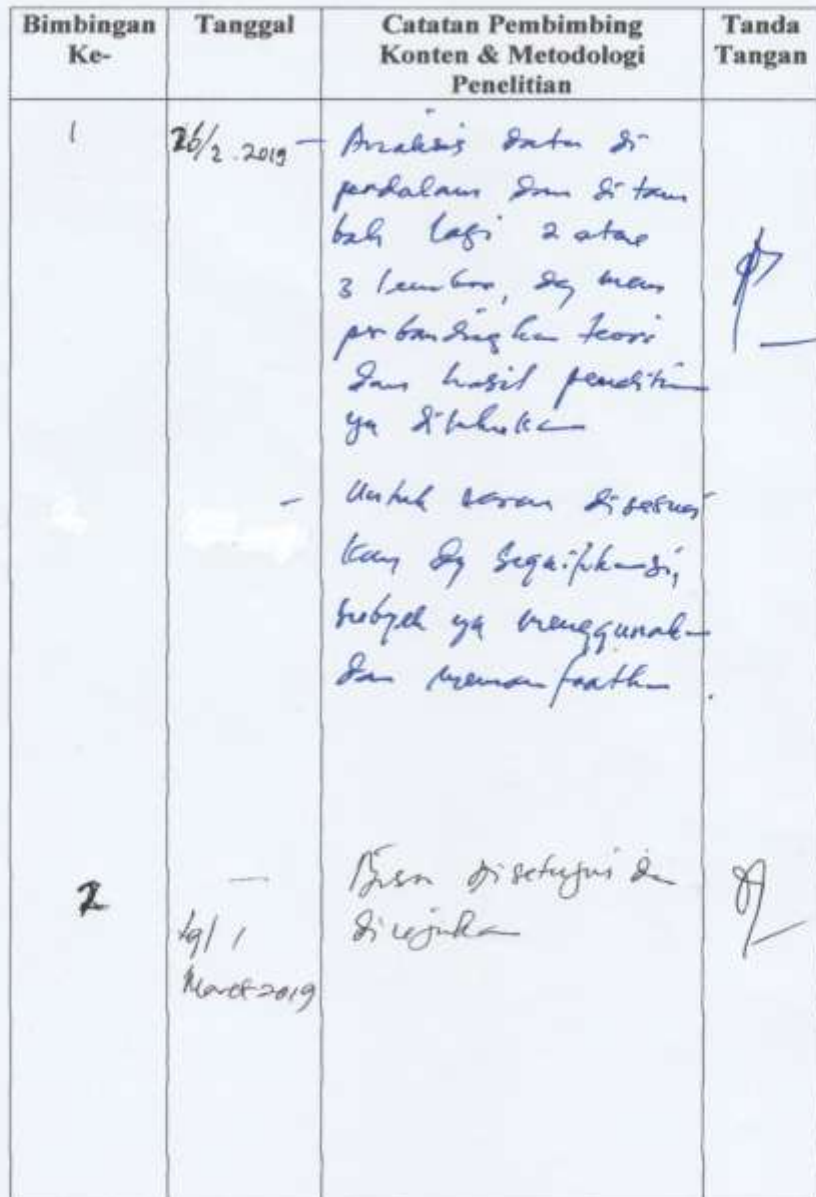 Bimbingan Ke-
Tanggal
Catatan Pembimbing Konten & Metodologi Penelitian
Tanda Tangan
1
26/2.2019
- Analisis data di
perdalam dan di tam
bah lagi 2 atau
3 lembar, dg mem
perbandingkan teori
dan hasil penelitian
yg dilakukan
- Untuk saran disesuai
kan dg
subyek yg menggunakan
dan memanfaatkan.
2
tgl 1
Maret 2019
Bisa disetujui dan